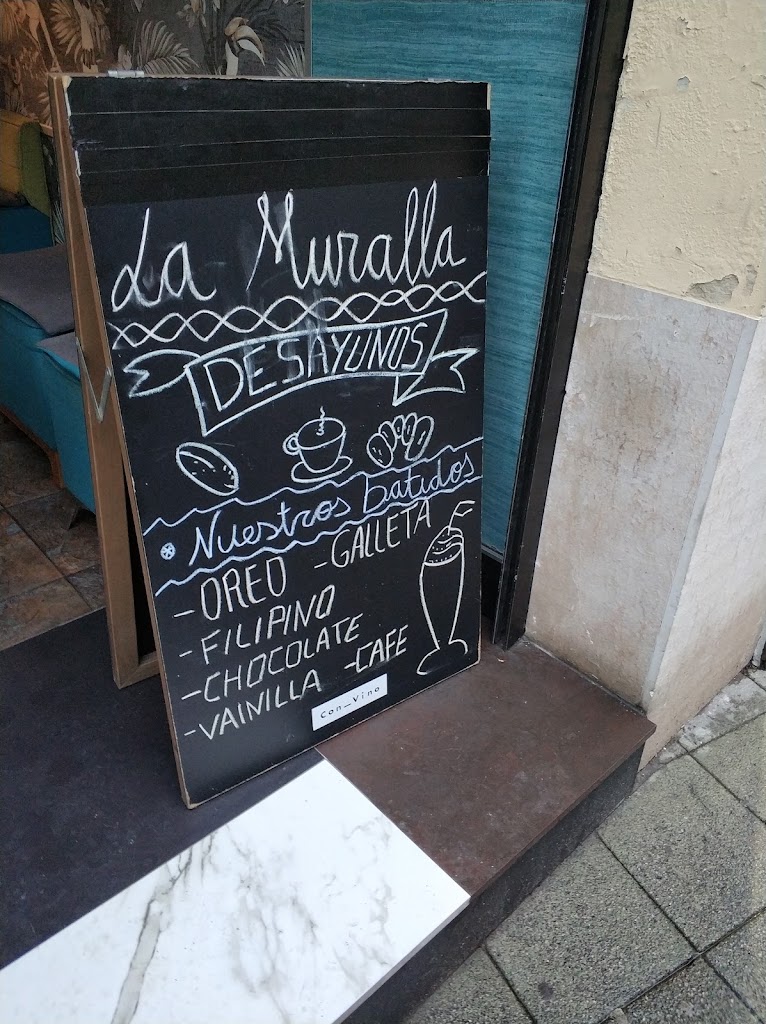 La Muralla
DESAYUNOS
Nuestros batidos
- OREO - GALLETA
- FILIPINO
- CHOCOLATE
- VAINILLA - CAFE
Con_Vino